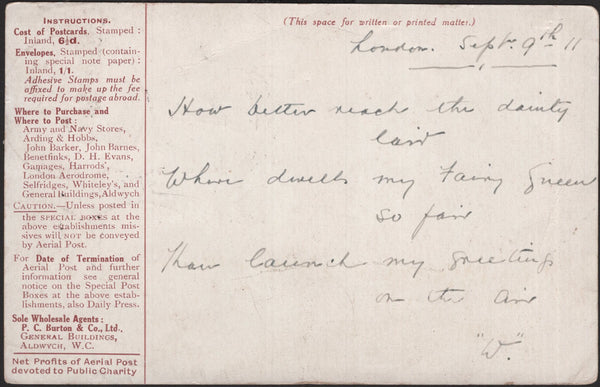 INSTRUCTIONS.
Cost of Postcards. Stamped :
Inland, 6½d.
Envelopes, Stamped (contain-
ing special note paper) :
Inland, 1/1.
Adhesive Stamps must be
affixed to make up the fee
required for postage abroad.
Where to Purchase and
Where to Post :
Army and Navy Stores,
Arding & Hobbs,
John Barker, John Barnes,
Benetfinks, D. H. Evans,
Gamages, Harrods',
London Aerodrome,
Selfridges, Whiteley's, and
General Buildings, Aldwych
CAUTION.—Unless posted in
the SPECIAL BOXES at the
above establishments mis-
sives will NOT be conveyed
by Aerial Post.
For Date of Termination of
Aerial Post and further
information see general
notice on the Special Post
Boxes at the above estab-
lishments, also Daily Press.
Sole Wholesale Agents :
P. C. Burton & Co., Ltd.,
GENERAL BUILDINGS,
ALDWYCH, W.C.
Net Profits of Aerial Post
devoted to Public Charity
(This space for written or printed matter.)
London. Sept. 9th 11
How better reach the dainty
lair
Where dwells my Fairy Queen
so fair
Than launch my greeting
on the air
"W."